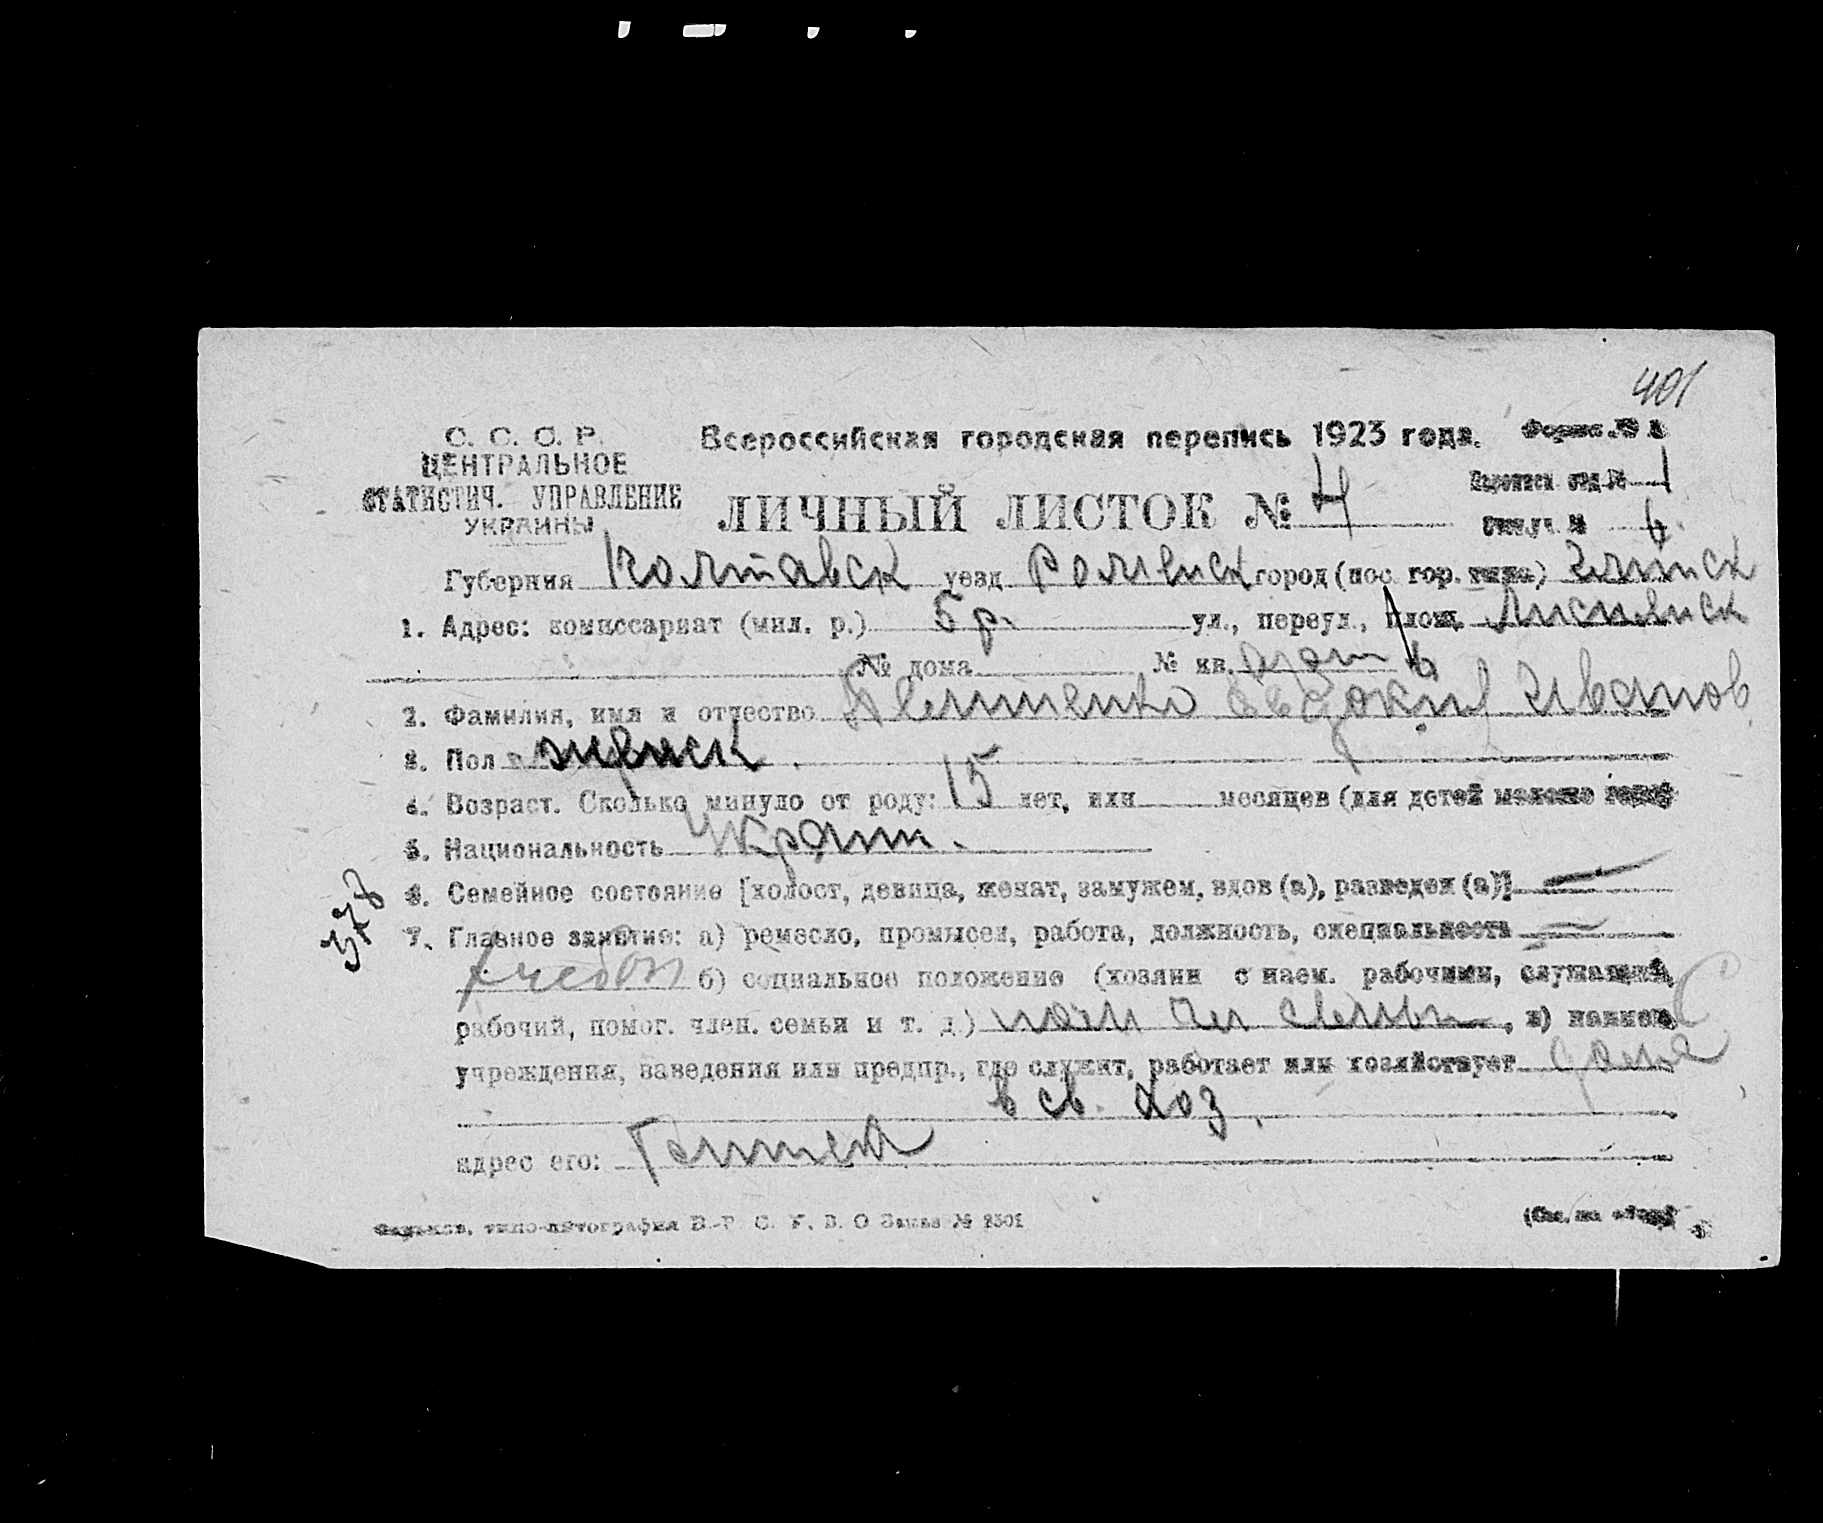 401
С. С. С. Р.
ЦЕНТРАЛЬНОЕ
СТАТИСТИЧ. УПРАВЛЕНИЕ
УКРАИНЫ
Всероссийская городская перепись 1923 года. Форма №
ЛИЧНЫЙ ЛИСТОК № 4
1
Губерния Полтавск уезд Роменск город (пос. гор. типа) Глинск
1. Адрес: комиссариат (мил. р.) 5 р. ул., переул., площ.
№ дома № кв.
2. Фамилия, имя и отчество Евдокия Иванов
3. Пол женск.
4. Возраст. Сколько минуло от роду: 15 лет, или месяцев (для детей моложе года)
5. Национальность Украин.
378
6. Семейное состояние [холост, девица, женат, замужем, вдов (а), разведен (а)]
7. Главное занятие: а) ремесло, промысел, работа, должность, специальность
б) социальное положение (хозяин с наем. рабочими, служащий,
рабочий, помог. член. семьи и т. д.) пом чл семьи, в) наимен.
учреждения, заведения или предпр., где служит, работает или хозяйствует дома
в св. хоз.
адрес его: Глинск
Харьков, типо-литография В. О Заказ № 2501
(См. на обор.)